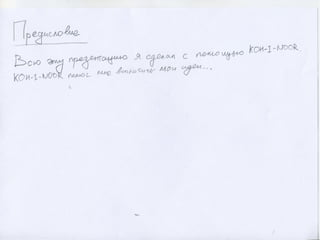 Предисловие
Всю эту презентацию я сделал с помощью KOH-I-NOOR
KOH-I-NOOR помог мне воплотить мои идеи...